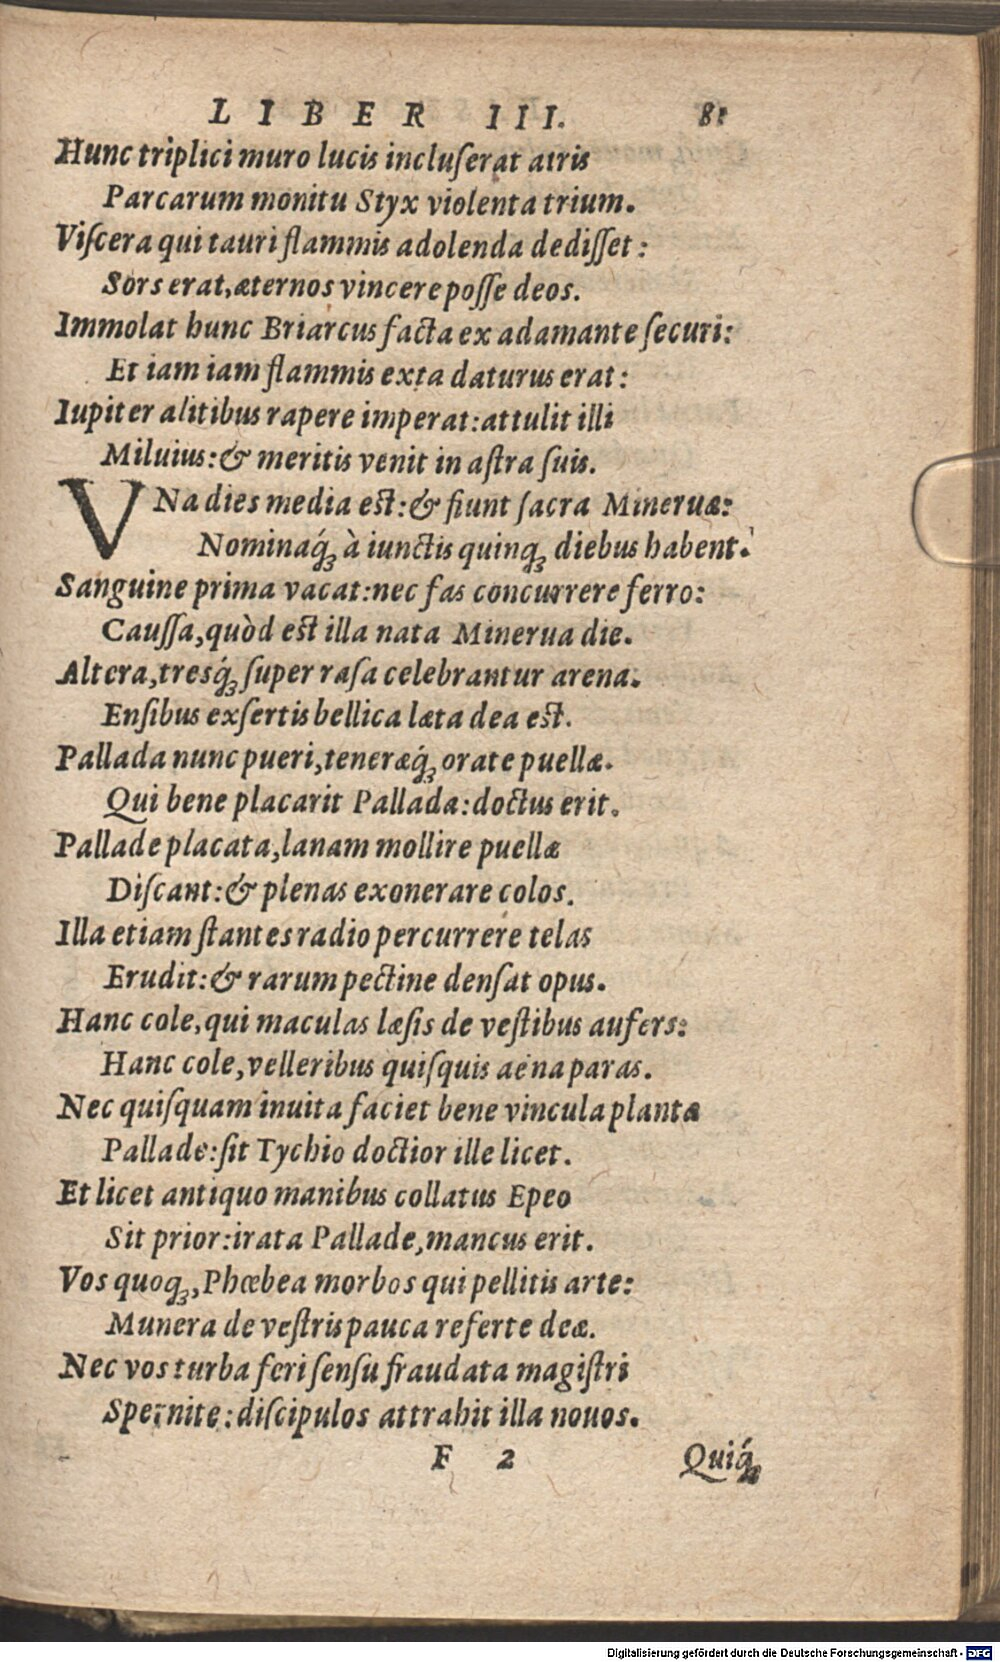 LIBER III. 81
Hunc triplici muro lucis incluſerat atris
Parcarum monitu Styx violenta trium.
Viſcera qui tauri flammis adolenda dediſſet:
Sors erat, æternos vincere poſſe deos.
Immolat hunc Briareus facta ex adamante ſecuri:
Et iam iam flammis exta daturus erat:
Iupiter alitibus rapere imperat: attulit illi
Miluius: & meritis venit in aſtra ſuis.
VNa dies media est: & fiunt ſacra Mineruæ:
Nominaq́ꝫ à iunctis quinqꝫ diebus habent.
Sanguine prima vacat: nec fas concurrere ferro:
Cauſſa, quòd est illa nata Minerua die.
Altera, tresq́ꝫ ſuper raſa celebrantur arena.
Enſibus exſertis bellica læta dea est.
Pallada nunc pueri, teneræq́ꝫ orate puellæ.
Qui bene placarit Pallada: doctus erit.
Pallade placata, lanam mollire puellæ
Diſcant: & plenas exonerare colos.
Illa etiam ſtantes radio percurrere telas
Erudit: & rarum pectine denſat opus.
Hanc cole, qui maculas læſis de veſtibus aufers:
Hanc cole, velleribus quiſquis aena paras.
Nec quiſquam inuita faciet bene vincula plantæ
Pallade: ſit Tychio doctior ille licet.
Et licet antiquo manibus collatus Epeo
Sit prior: irata Pallade, mancus erit.
Vos quoqꝫ, Phœbea morbos qui pellitis arte:
Munera de veſtris pauca referte deæ.
Nec vos turba feri ſenſu fraudata magiſtri
Spernite: diſcipulos attrahit illa nouos.
F 2 Quiq́ꝫ
Digitalisierung gefördert durch die Deutsche Forschungsgemeinschaft - DFG